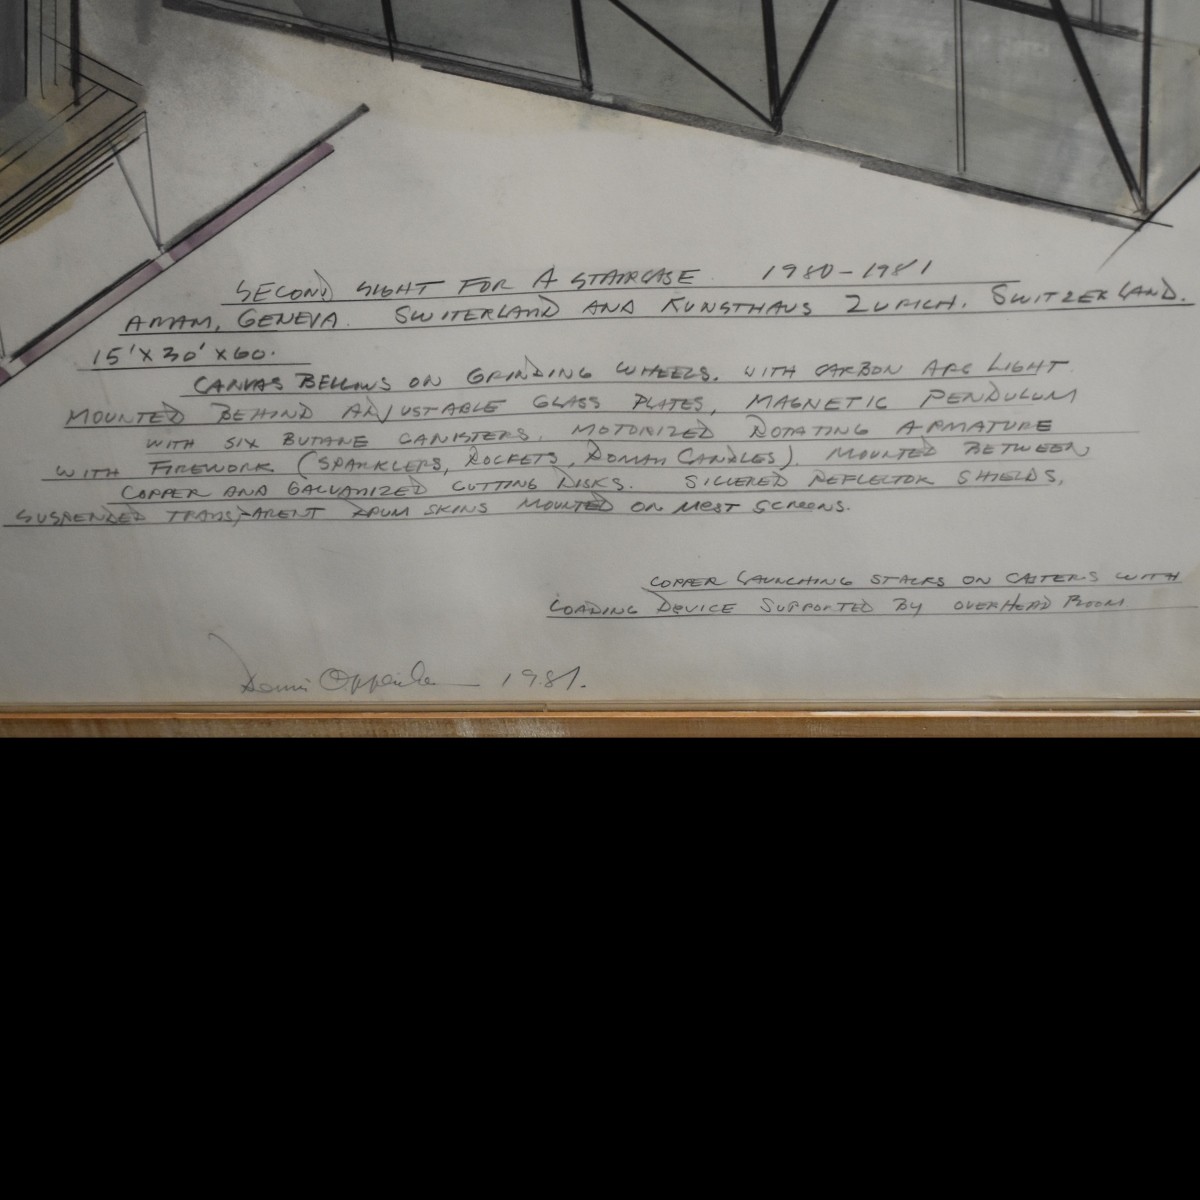 SECOND SIGHT FOR A STAIRCASE 1980-1981
AMAM, GENEVA. SWITERLAND AND KUNSTHAUS ZURICH. SWITZERLAND.
15'X30'X60.
CANVAS BELLOWS ON GRINDING WHEELS. WITH CARBON ARC LIGHT
MOUNTED BEHIND ADJUSTABLE GLASS PLATES, MAGNETIC PENDULUM
WITH SIX BUTANE CANISTERS. MOTORIZED ROTATING ARMATURE
WITH FIREWORK (SPARKLERS, ROCKETS, ROMAN CANDLES). MOUNTED BETWEEN
COPPER AND GALVANIZED CUTTING DISKS. SILVERED REFLECTOR SHIELDS,
SUSPENDED TRANSPARENT DRUM SKINS MOUNTED ON MEST SCREENS.
COPPER LAUNCHING STACKS ON CASTERS WITH
LOADING DEVICE SUPPORTED BY OVERHEAD BOOM
Dennis Oppenheim 1981.